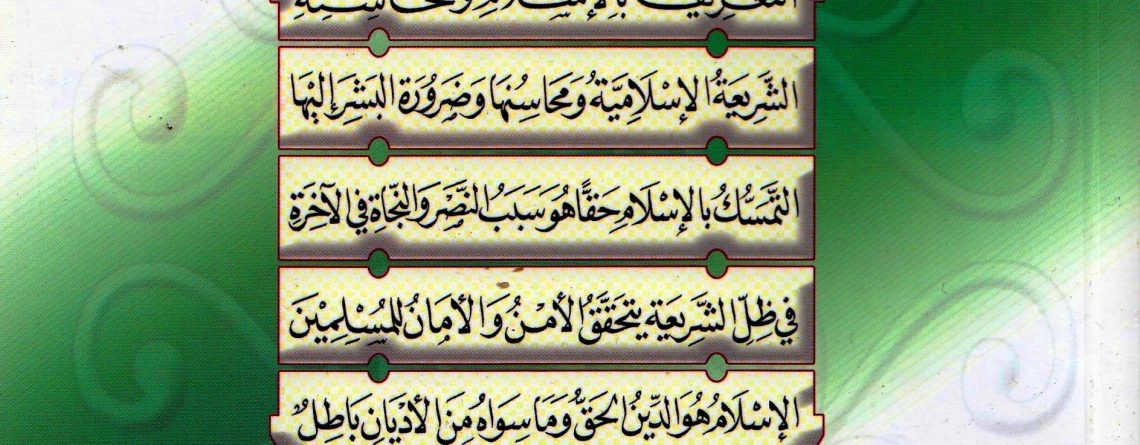 التعريف بالإسلام ومحاسنه
الشَّرِيعَةُ الإِسْلَامِيَّةُ وَمَحَاسِنُهَا وَضَرُورَة البَشَرِ إِلَيْهَا
التَّمَسُّكُ بالإِسْلَامِ حَقًّا هُوَ سَبَبُ النَّصْرِ وَالنَّجَاةِ فِي الآخِرَةِ
فِي ظِلِّ الشَّرِيعَةِ يَتَحَقَّقُ الأَمْنُ وَالأَمَانُ لِلْمُسْلِمِيْنَ
الإِسْلَامُ هُوَ الدِّينُ الحَقُّ وَمَا سِوَاهُ مِنَ الأَدْيَانِ بَاطِلٌ